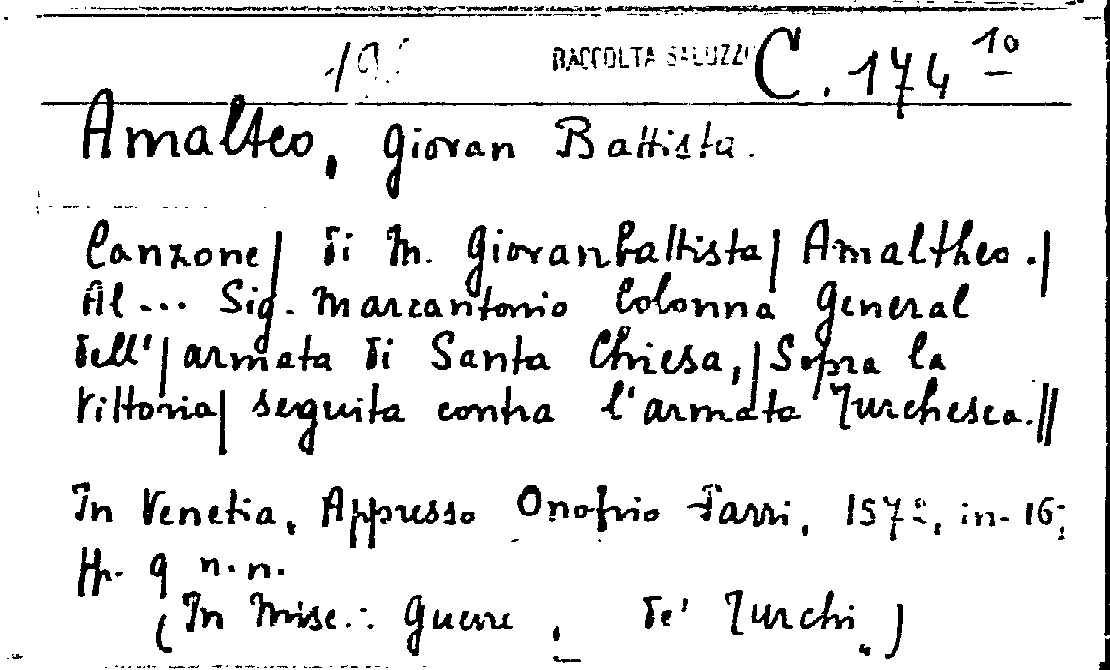 RACCOLTA SALUZZO C. 174 1º
Amalteo, Giovan Battista.
Canzone/ di M. Giovanbattista/ Amaltheo./
Al ... Sig. Marcantonio Colonna General
dell'/ armata di Santa Chiesa,/ Sopra la
Vittoria/ seguita contra l'armata Turchesca.//
In Venetia, Appresso Onofrio Farri, 1572, in-16;
ff. 9 n.n.
(In Misc.: Guerre de' Turchi.)